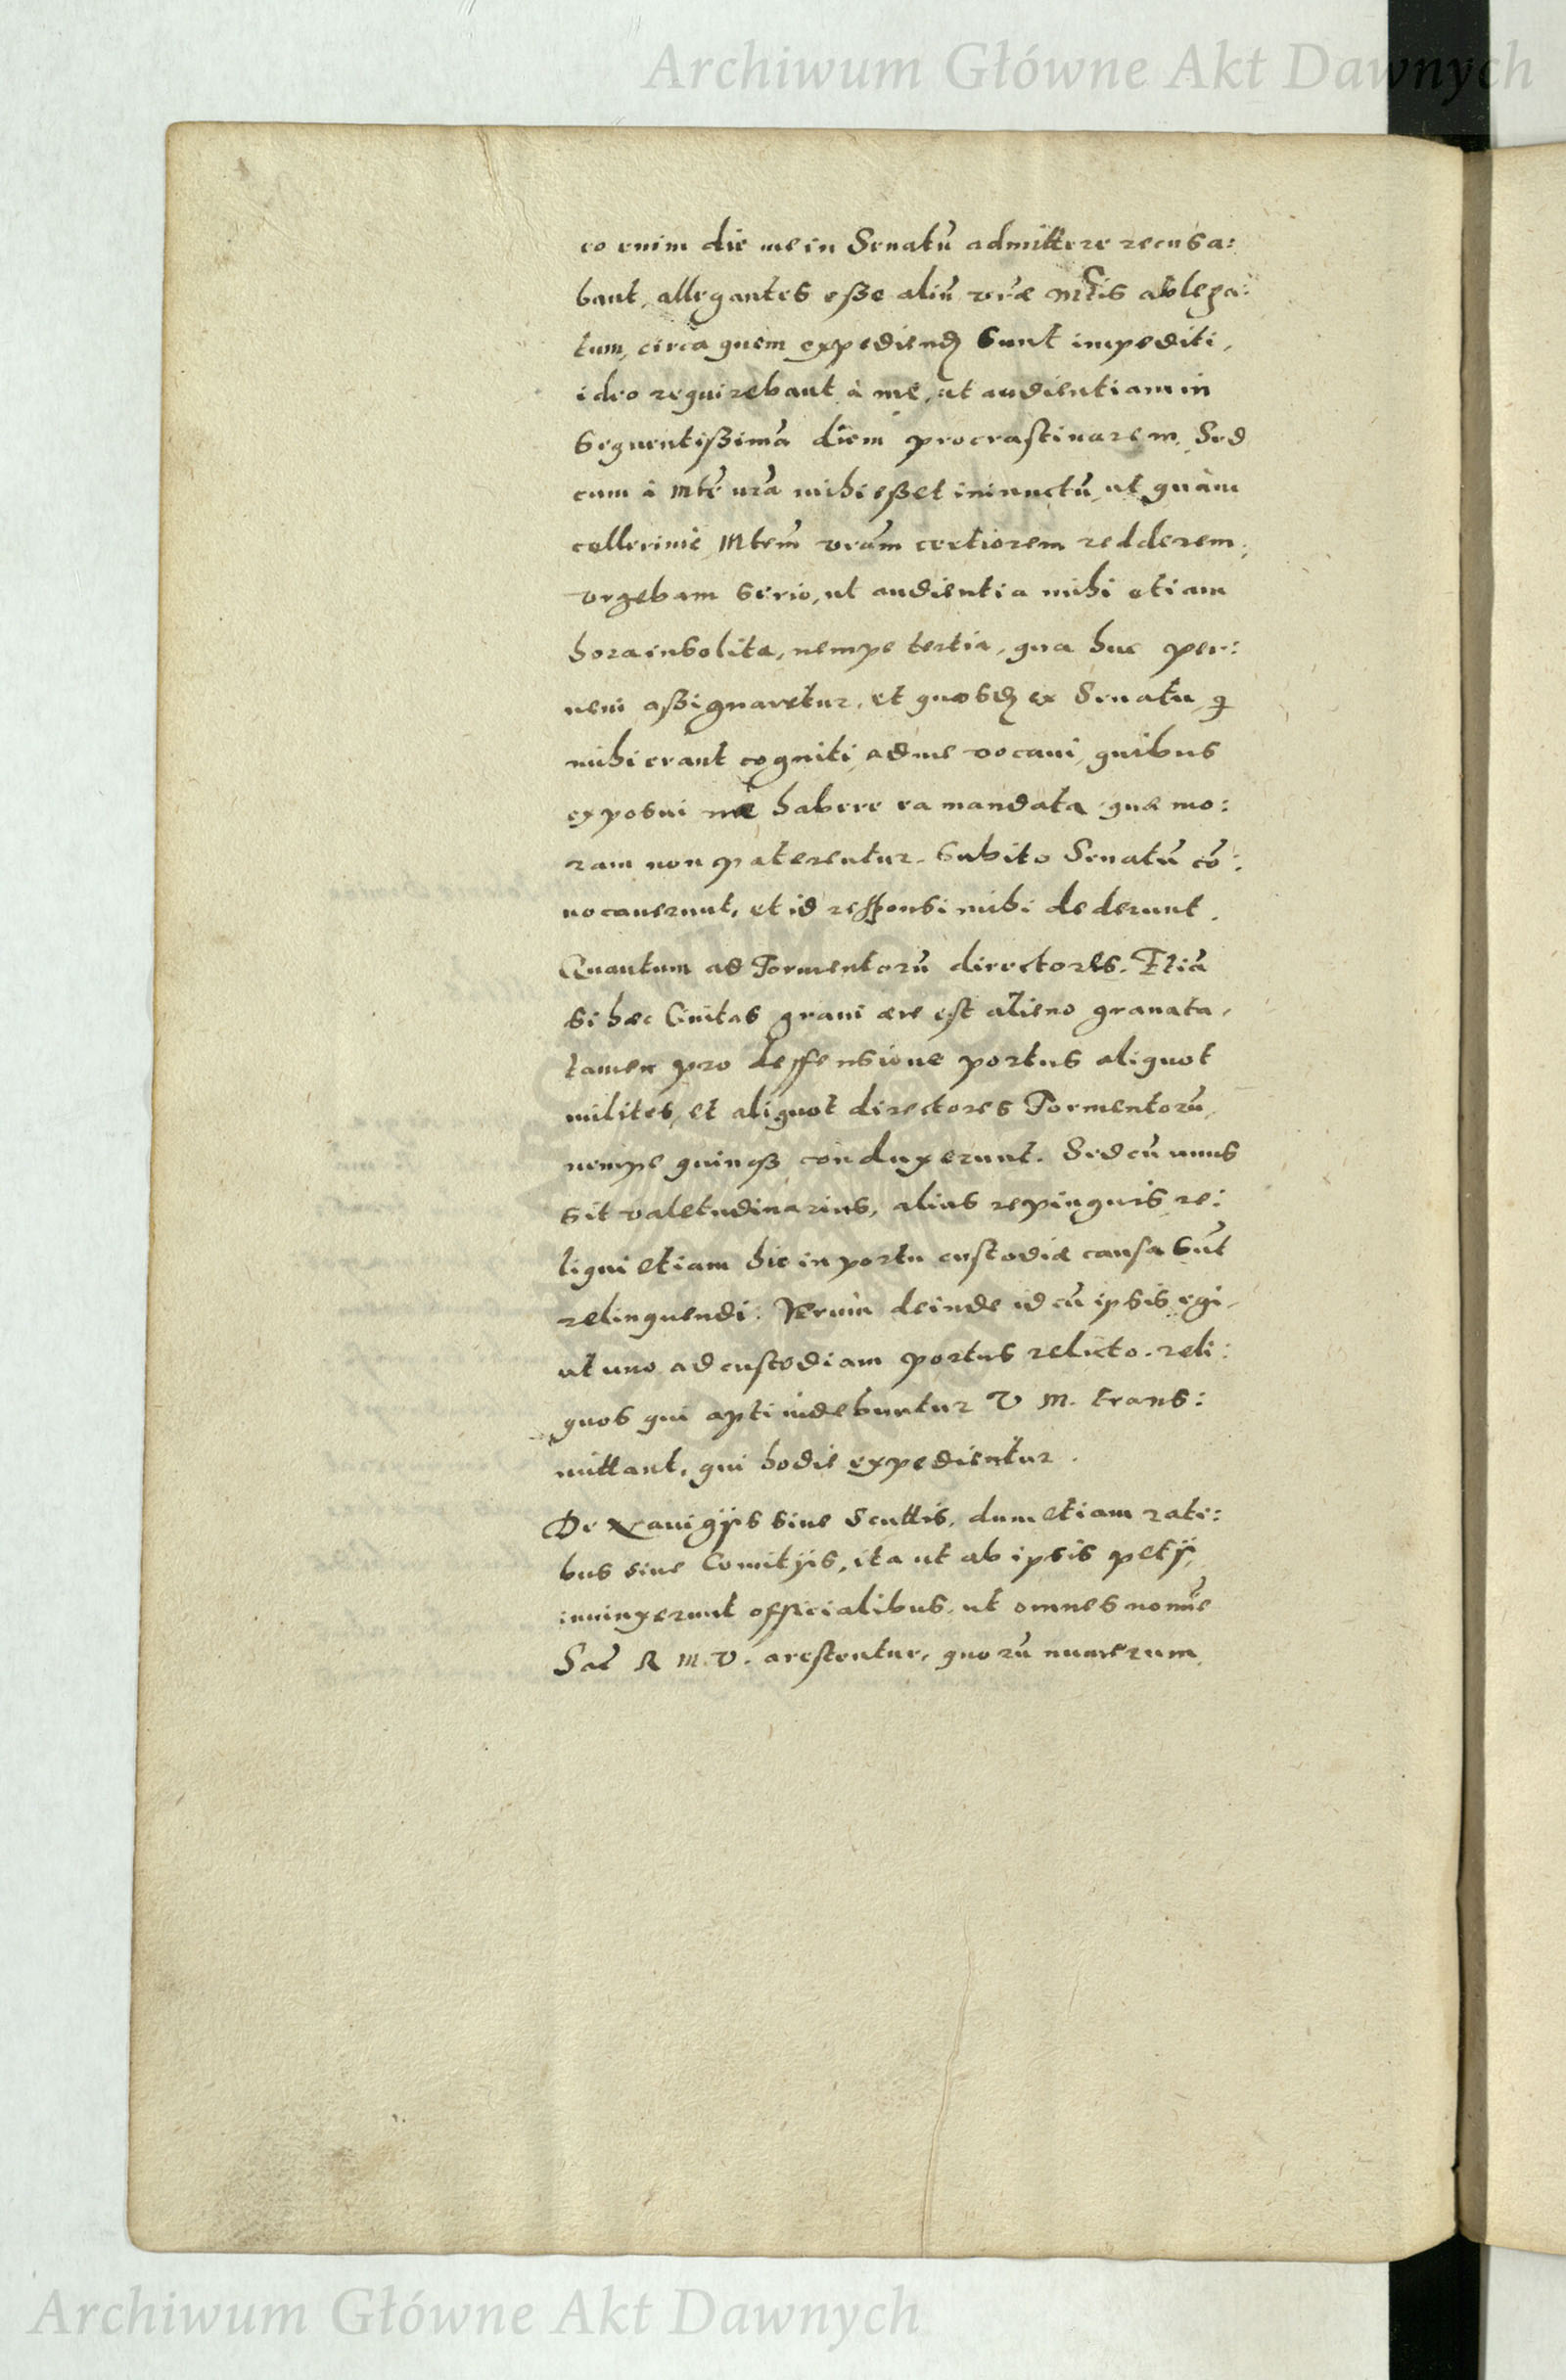 Archiwum Główne Akt Dawnych
eo enim die me in Senatū admittere recusa:
bant, allegantes eße aliū vr̄æ Mtis ablega:
tum, circa quem expediendꝫ sunt impediti,
ideo requirebant à me, ut audientiam in
sequentißimā diem procrastinarem. Sed
cum à Mte vrā mihi eßet iniunctū, ut quàm
cellerimè Mtem vrām certiorem redderem,
vrgebam serio, ut audientia mihi etiam
hora insolita, nempe tertia, qua huc per:
ueni aßignaretur, et quosdꝫ ex Senatu, q
mihi erant cogniti, ad me vocaui, quibus
exposui me habere ea mandata quæ mo:
ram non paterentur. Subito Senatū cō:
uocauerunt, et id responsi mihi dederunt.
Quantum ad Tormentorū directores. Etiā
si hæc Ciuitas graui ære est alieno grauata,
tamen pro deffensione portus aliquot
milites, et aliquot directores Tormentorū,
nempe quinqꝫ conduxerunt. Sed cū unus
sit valetudinarius, alius repinguis, re:
liqui etiam hic in portu custodiæ causa sūt
relinquendi. Verùm deinde id cū ipsis egi,
ut uno ad custodiam portus relicto, reli:
quos qui apti uidebuntur V M. trans:
mittant, qui hodie expedientur.
De Nauigijs siue Scuttis, dum etiam rati:
bus siue Comitijs, ita ut ab ipsis petij,
iniunxerunt officialibus, ut omnes nomīe
Sac R M. V. arestentur, quorū numerum
Archiwum Główne Akt Dawnych